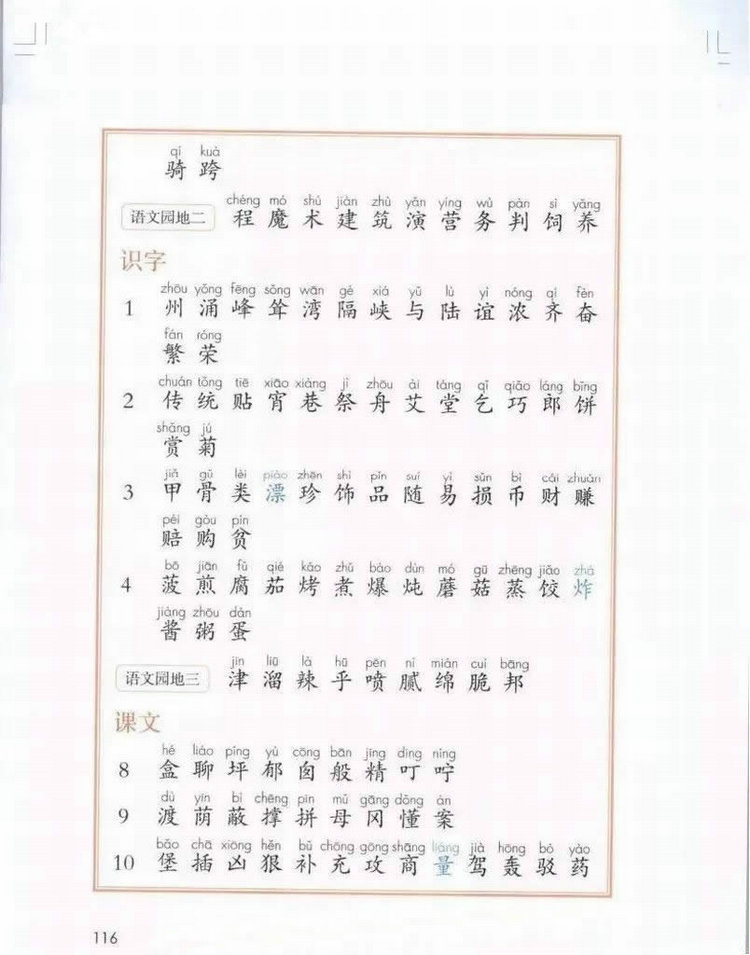 qí kuà
骑 跨
chéng mó shù jiàn zhù yǎn yíng wù pàn sì yǎng
语文园地二 程 魔 术 建 筑 演 营 务 判 饲 养
识字
zhōu yǒng fēng sǒng wān gé xiá yǔ lù yì nóng qí fèn
1 州 涌 峰 耸 湾 隔 峡 与 陆 谊 浓 齐 奋
fán róng
繁 荣
chuán tǒng tiē xiāo xiàng jì zhōu ài táng qǐ qiǎo láng bǐng
2 传 统 贴 宵 巷 祭 舟 艾 堂 乞 巧 郎 饼
shǎng jú
赏 菊
jiǎ gǔ lèi piào zhēn shì pǐn suí yì sǔn bì cái zhuàn
3 甲 骨 类 漂 珍 饰 品 随 易 损 币 财 赚
péi gòu pín
赔 购 贫
bō jiān fǔ qié kǎo zhǔ bào dùn mó gū zhēng jiǎo zhá
4 菠 煎 腐 茄 烤 煮 爆 炖 蘑 菇 蒸 饺 炸
jiàng zhōu dàn
酱 粥 蛋
jīn liū là hū pēn nì mián cuì bāng
语文园地三 津 溜 辣 乎 喷 腻 绵 脆 邦
课文
hé liáo píng yù cōng bān jīng dīng níng
8 盒 聊 坪 郁 囱 般 精 叮 咛
dù yīn bì chēng pīn mǔ gāng dǒng àn
9 渡 荫 蔽 撑 拼 母 冈 懂 案
bǎo chā xiōng hěn bǔ chōng gōng shāng liáng jià hōng bó yào
10 堡 插 凶 狠 补 充 攻 商 量 驾 轰 驳 药
116